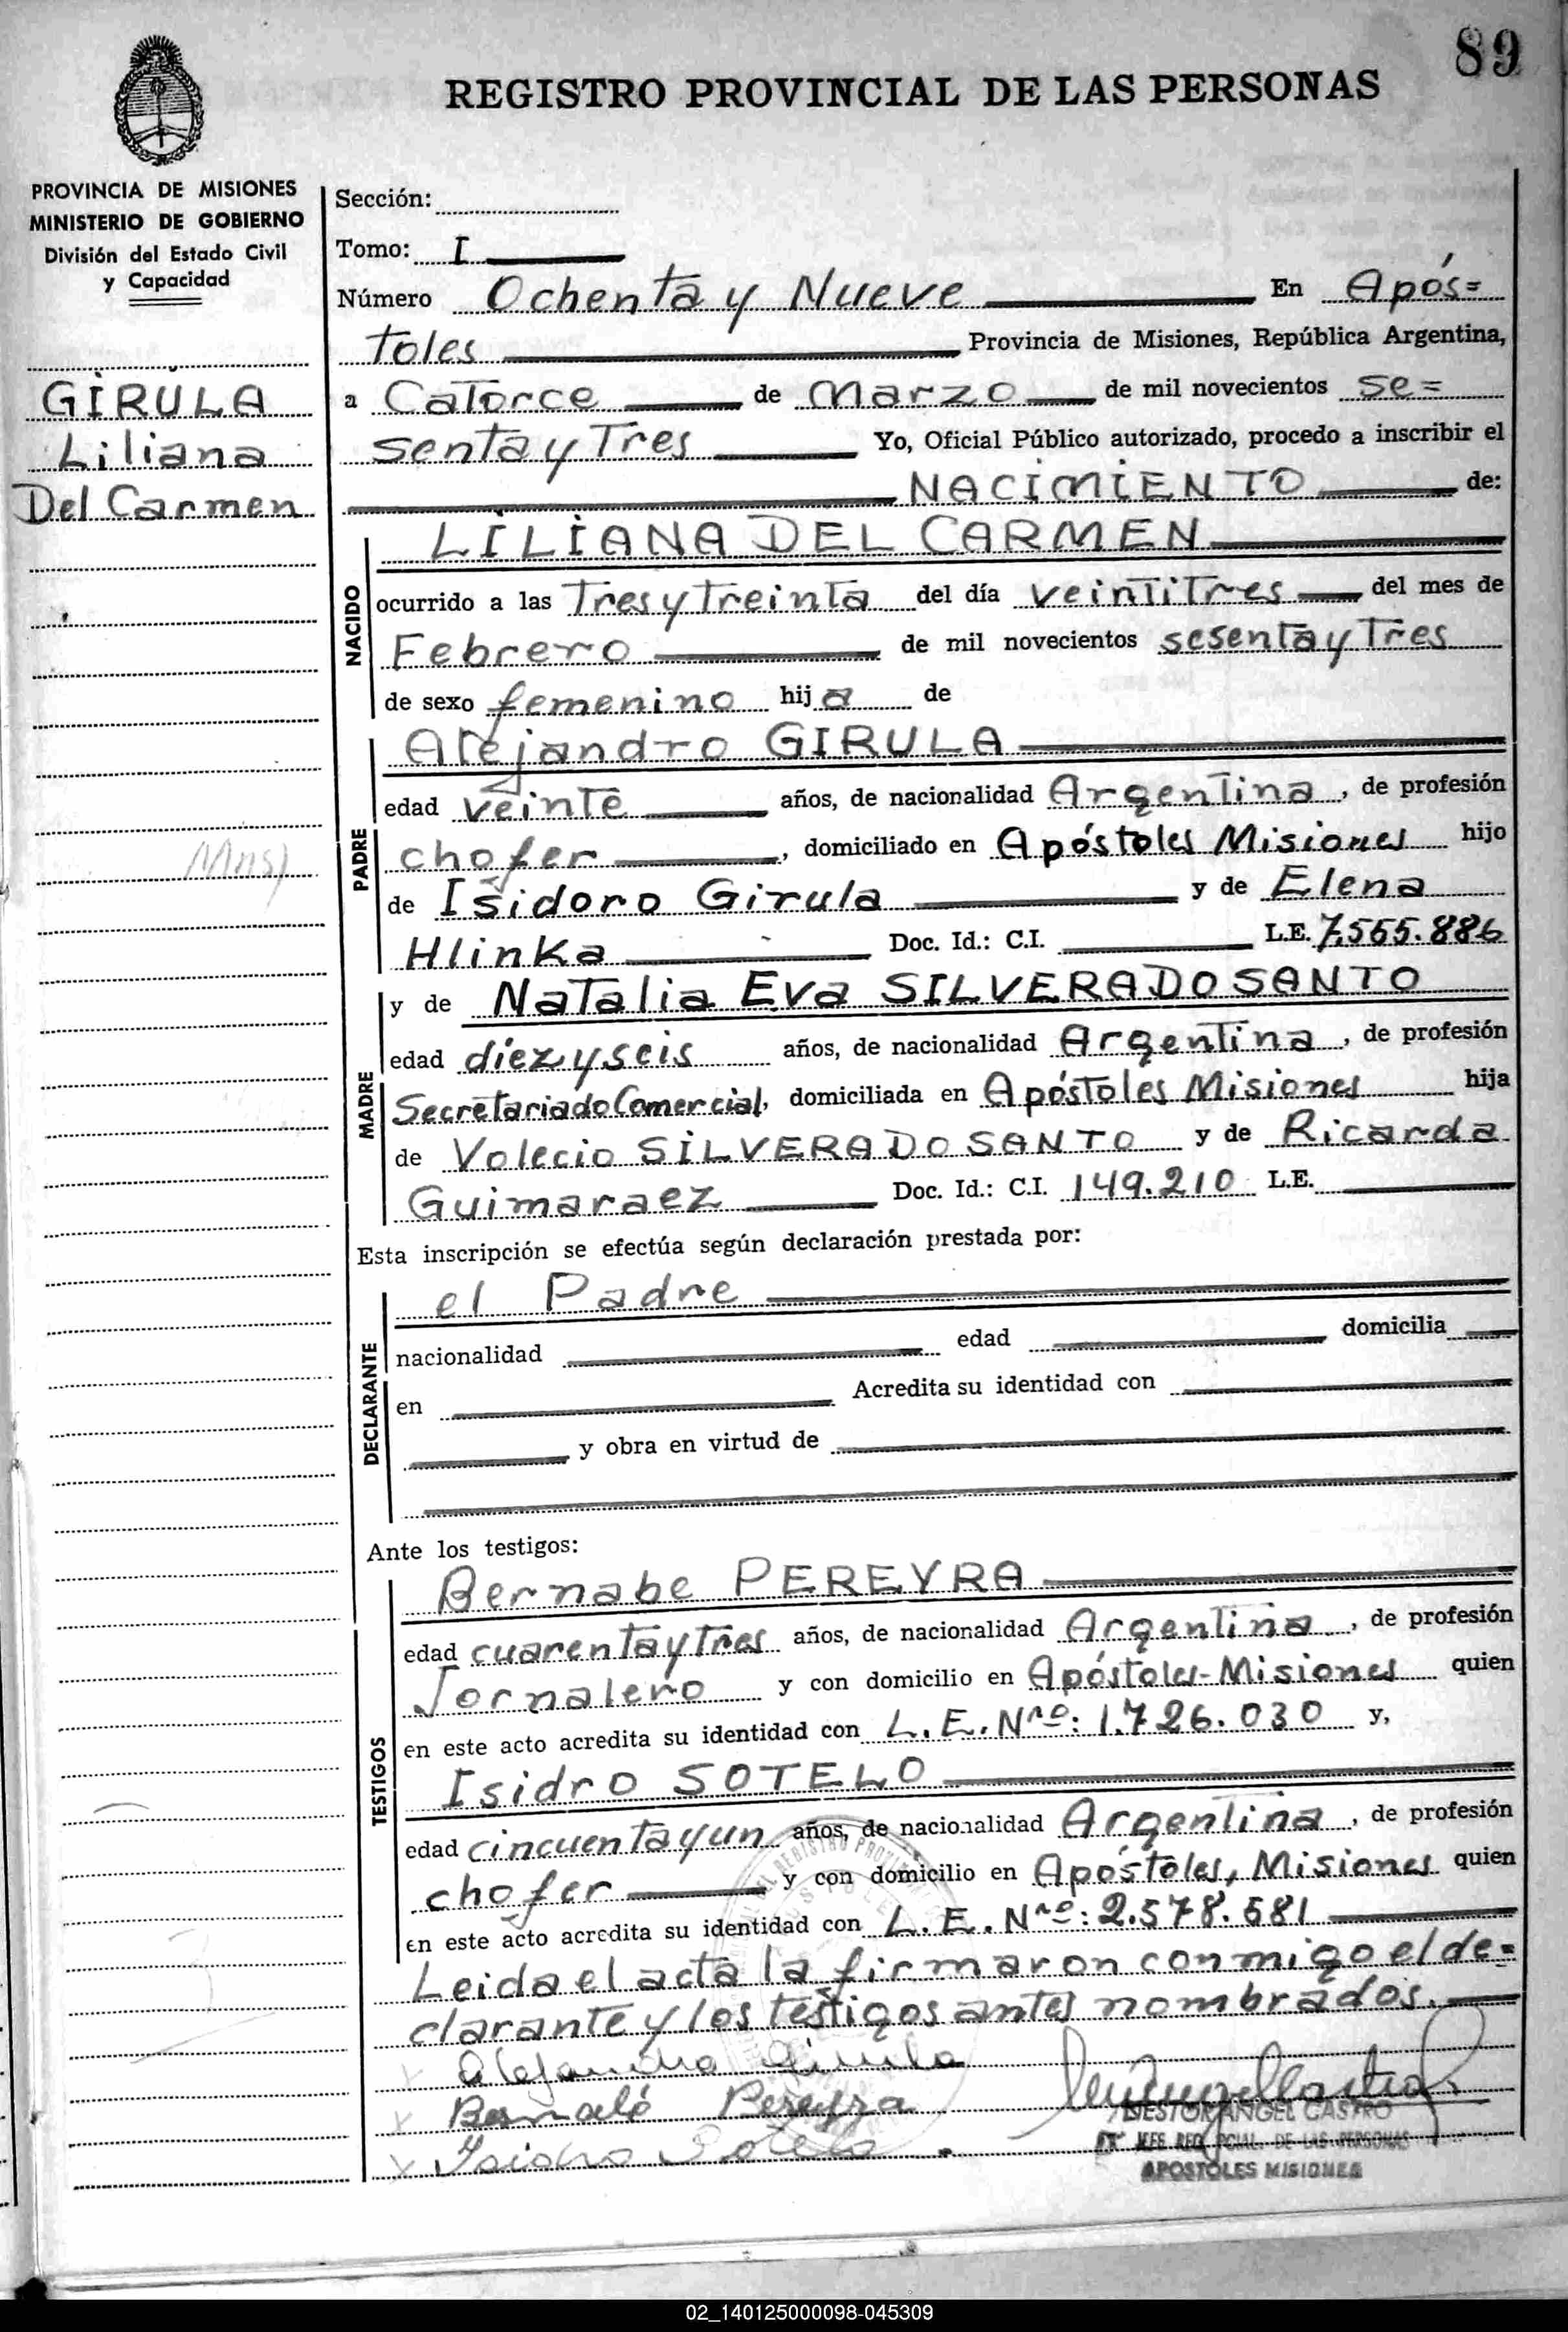 89
REGISTRO PROVINCIAL DE LAS PERSONAS
PROVINCIA DE MISIONES
MINISTERIO DE GOBIERNO
División del Estado Civil
y Capacidad
GIRULA
Liliana
Del Carmen
Sección:
Tomo: I
Número Ochenta y Nueve En Após=
toles Provincia de Misiones, República Argentina,
a Catorce de Marzo de mil novecientos se=
senta y Tres Yo, Oficial Público autorizado, procedo a inscribir el
NACIMIENTO de:
NACIDO
LILIANA DEL CARMEN
ocurrido a las Tres y Treinta del día veintitres del mes de
Febrero de mil novecientos sesenta y Tres
de sexo femenino hija de
PADRE
Alejandro GIRULA
edad veinte años, de nacionalidad Argentina, de profesión
chofer, domiciliado en Apóstoles Misiones hijo
de Isidoro Girula y de Elena
Hlinka Doc. Id.: C.I. L.E. 7.565.886
MADRE
y de Natalia Eva SILVERADOSANTO
edad diez y seis años, de nacionalidad Argentina, de profesión
Secretariado Comercial, domiciliada en Apóstoles Misiones hija
de Volecio SILVERADOSANTO y de Ricarda
Guimaraez Doc. Id.: C.I. 149.210 L.E.
Esta inscripción se efectúa según declaración prestada por:
DECLARANTE
el Padre
nacionalidad edad domicilia
en Acredita su identidad con
y obra en virtud de
Ante los testigos:
TESTIGOS
Bernabe PEREYRA
edad cuarenta y tres años, de nacionalidad Argentina, de profesión
Jornalero y con domicilio en Apóstoles-Misiones quien
en este acto acredita su identidad con L.E. Nro: 1.726.030 y,
Isidro SOTELO
edad cincuenta y un años, de nacionalidad Argentina, de profesión
chofer y con domicilio en Apóstoles, Misiones quien
en este acto acredita su identidad con L.E. Nro: 2.578.681
Leida el acta la firmaron conmigo el de=
clarante y los testigos antes nombrados.
Alejandro Girula
Bernabé Pereyra
Isidro Sotelo
NESTOR ANGEL CASTRO
JEFE REG. PCIAL. DE LAS PERSONAS
APOSTOLES MISIONES
02_140125000098-045309